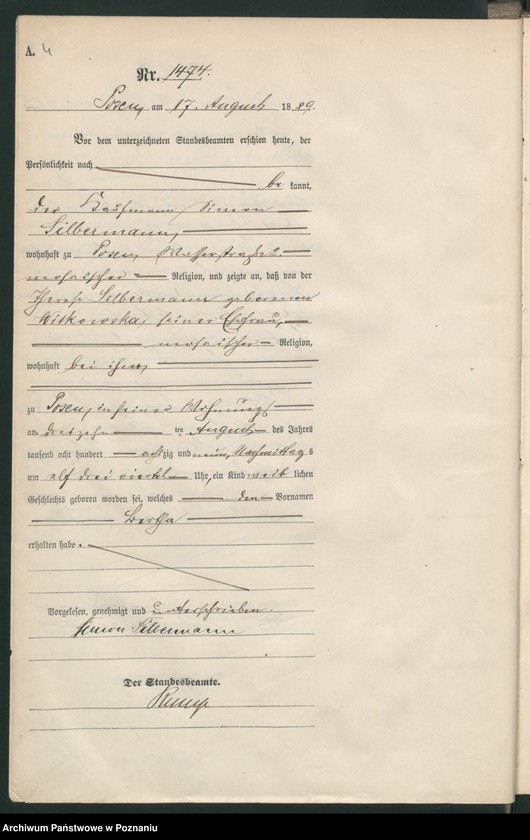 A. 4
Nr. 1474.
Posen, am 17. August 1889.
Vor dem unterzeichneten Standesbeamten erschien heute, der
Persönlichkeit nach
be kannt,
der Kaufmann Simon
Silbermann,
wohnhaft zu Posen, Wasserstraße 2.
mosaischer Religion, und zeigte an, daß von der
Silbermann geborenen
Witkowska, seiner Ehefrau,
mosaischer Religion,
wohnhaft bei ihm,
zu Posen, in seiner Wohnung,
am dreizehn ten August des Jahres
tausend acht hundert achtzig und neun, Nachmittag s
um elf drei viertel Uhr, ein Kind weib lichen
Geschlechts geboren worden sei, welches den Vornamen
Bertha
erhalten habe.
Vorgelesen, genehmigt und unterschrieben.
Simon Silbermann
Der Standesbeamte.
Archiwum Państwowe w Poznaniu